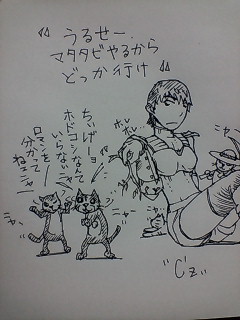 “うるせー.
マタタビやるから
どっか行け“
ホレ
ホレ
ちぃげーョ
ホドコシなんて
いらないニャ
ロマンを
分かって
ねェニャ
ニャ
ニャー
ニャー
"Cz"